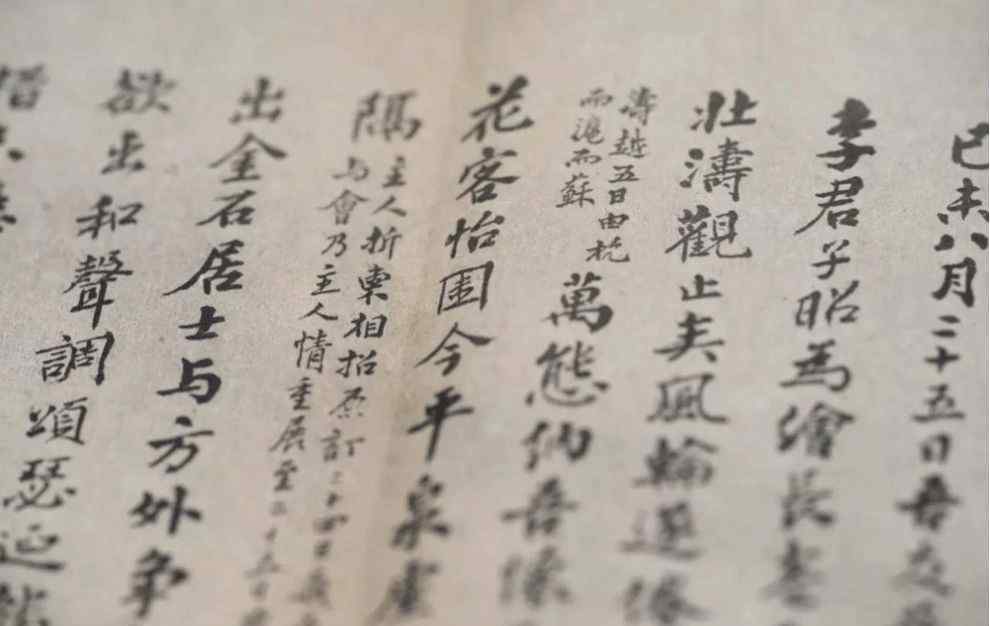 己未八月二十五日吾友
李君子昭為繪長卷
壯濤觀止矣風輪還
濤越五日由杭
而滬而蘇
萬態納吾
花客怡園今平泉
隅
主人折柬相招原訂二十四日
与會乃主人情重展至二十五日
出金石居士与方外爭
欲出和聲調頌瑟延